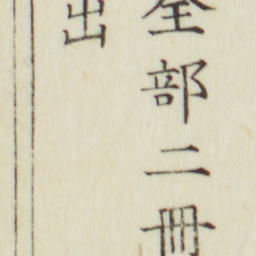 全部二冊
出